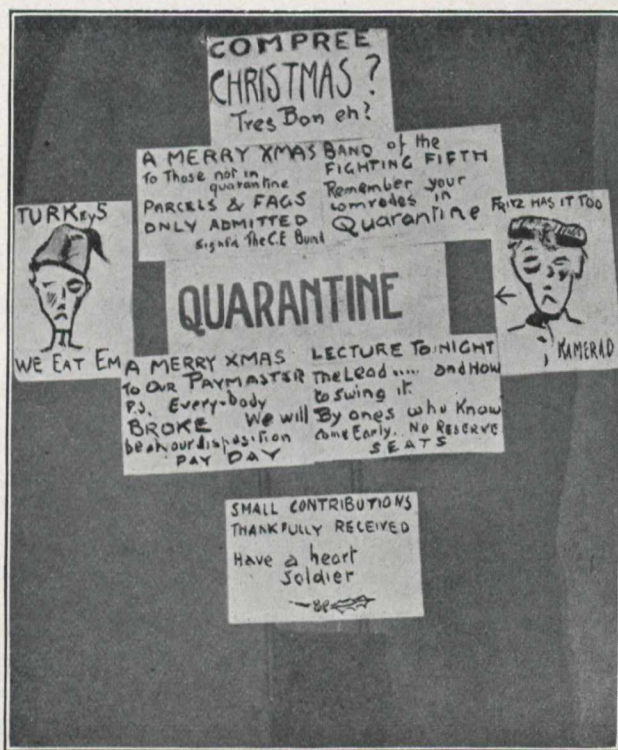 COMPREE
CHRISTMAS?
Tres Bon eh?
A MERRY XMAS
To Those not in
quarantine
PARCELS & FAGS
ONLY ADMITTED
Signed The C.E Bund
BAND of the
FIGHTING FIFTH
Remember your
comrades in
Quarantine
TURKeyS
WE EAT EM
FRITZ HAS IT TOO
KAMERAD
QUARANTINE
A MERRY XMAS
To OUR PAYMASTER
P.S. Every-body
BROKE We will
be at our disposition
PAY DAY
LECTURE TO-NIGHT
The Lead..... and How
to Swing it.
By ones who Know
Come Early. NO RESERVE
SEATS
SMALL CONTRIBUTIONS
THANKFULLY RECEIVED
Have a heart
Soldier